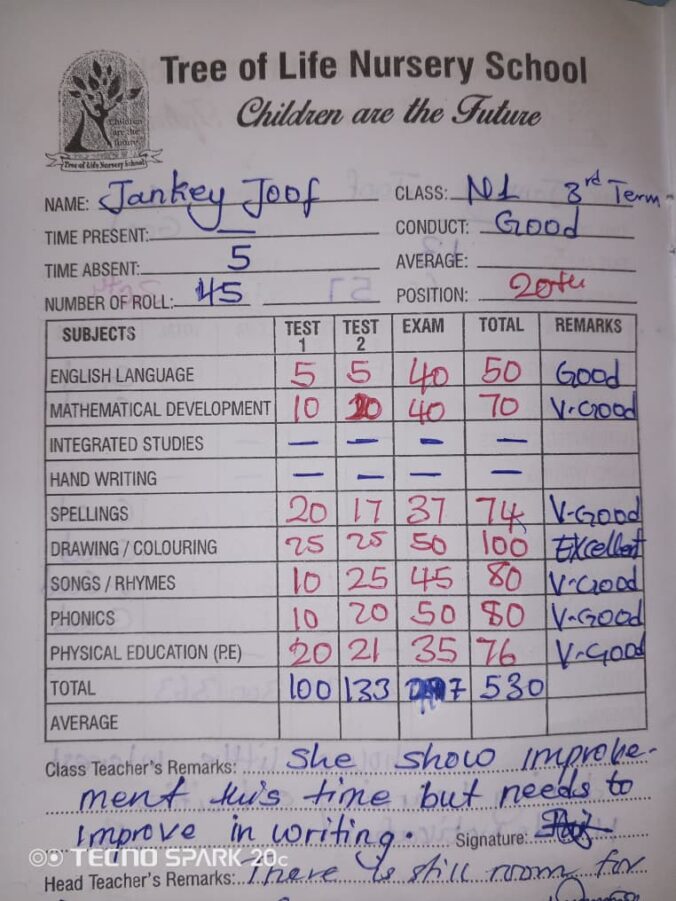 Children
are the
future
Tree of Life Nursery School
Tree of Life Nursery School
Children are the Future
NAME: Jankey Joof CLASS: N1 3rd Term
TIME PRESENT: — CONDUCT: Good
TIME ABSENT: 5 AVERAGE:
NUMBER OF ROLL: 45 POSITION: 20th
SUBJECTS TEST 1 TEST 2 EXAM TOTAL REMARKS
ENGLISH LANGUAGE 5 5 40 50 Good
MATHEMATICAL DEVELOPMENT 10 20 40 70 V-Good
INTEGRATED STUDIES — — — —
HAND WRITING — — — —
SPELLINGS 20 17 37 74 V-Good
DRAWING / COLOURING 25 25 50 100 Excellent
SONGS / RHYMES 10 25 45 80 V-Good
PHONICS 10 20 50 80 V-Good
PHYSICAL EDUCATION (P.E) 20 21 35 76 V-Good
TOTAL 100 133 530
AVERAGE
Class Teacher's Remarks: She show improve-
ment this time but needs to
improve in writing. Signature:
TECNO SPARK 20c
Head Teacher's Remarks: There is still room for